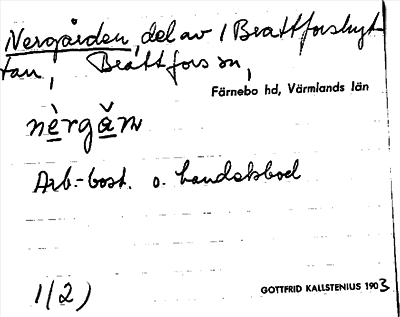 Nergården, del av 1 Brattforshyt
tan, Brattfors sn,
Färnebo hd, Värmlands län
nèrgǎn
Arb.-bost. o. handelsbod
1(2)
GOTTFRID KALLSTENIUS 1903